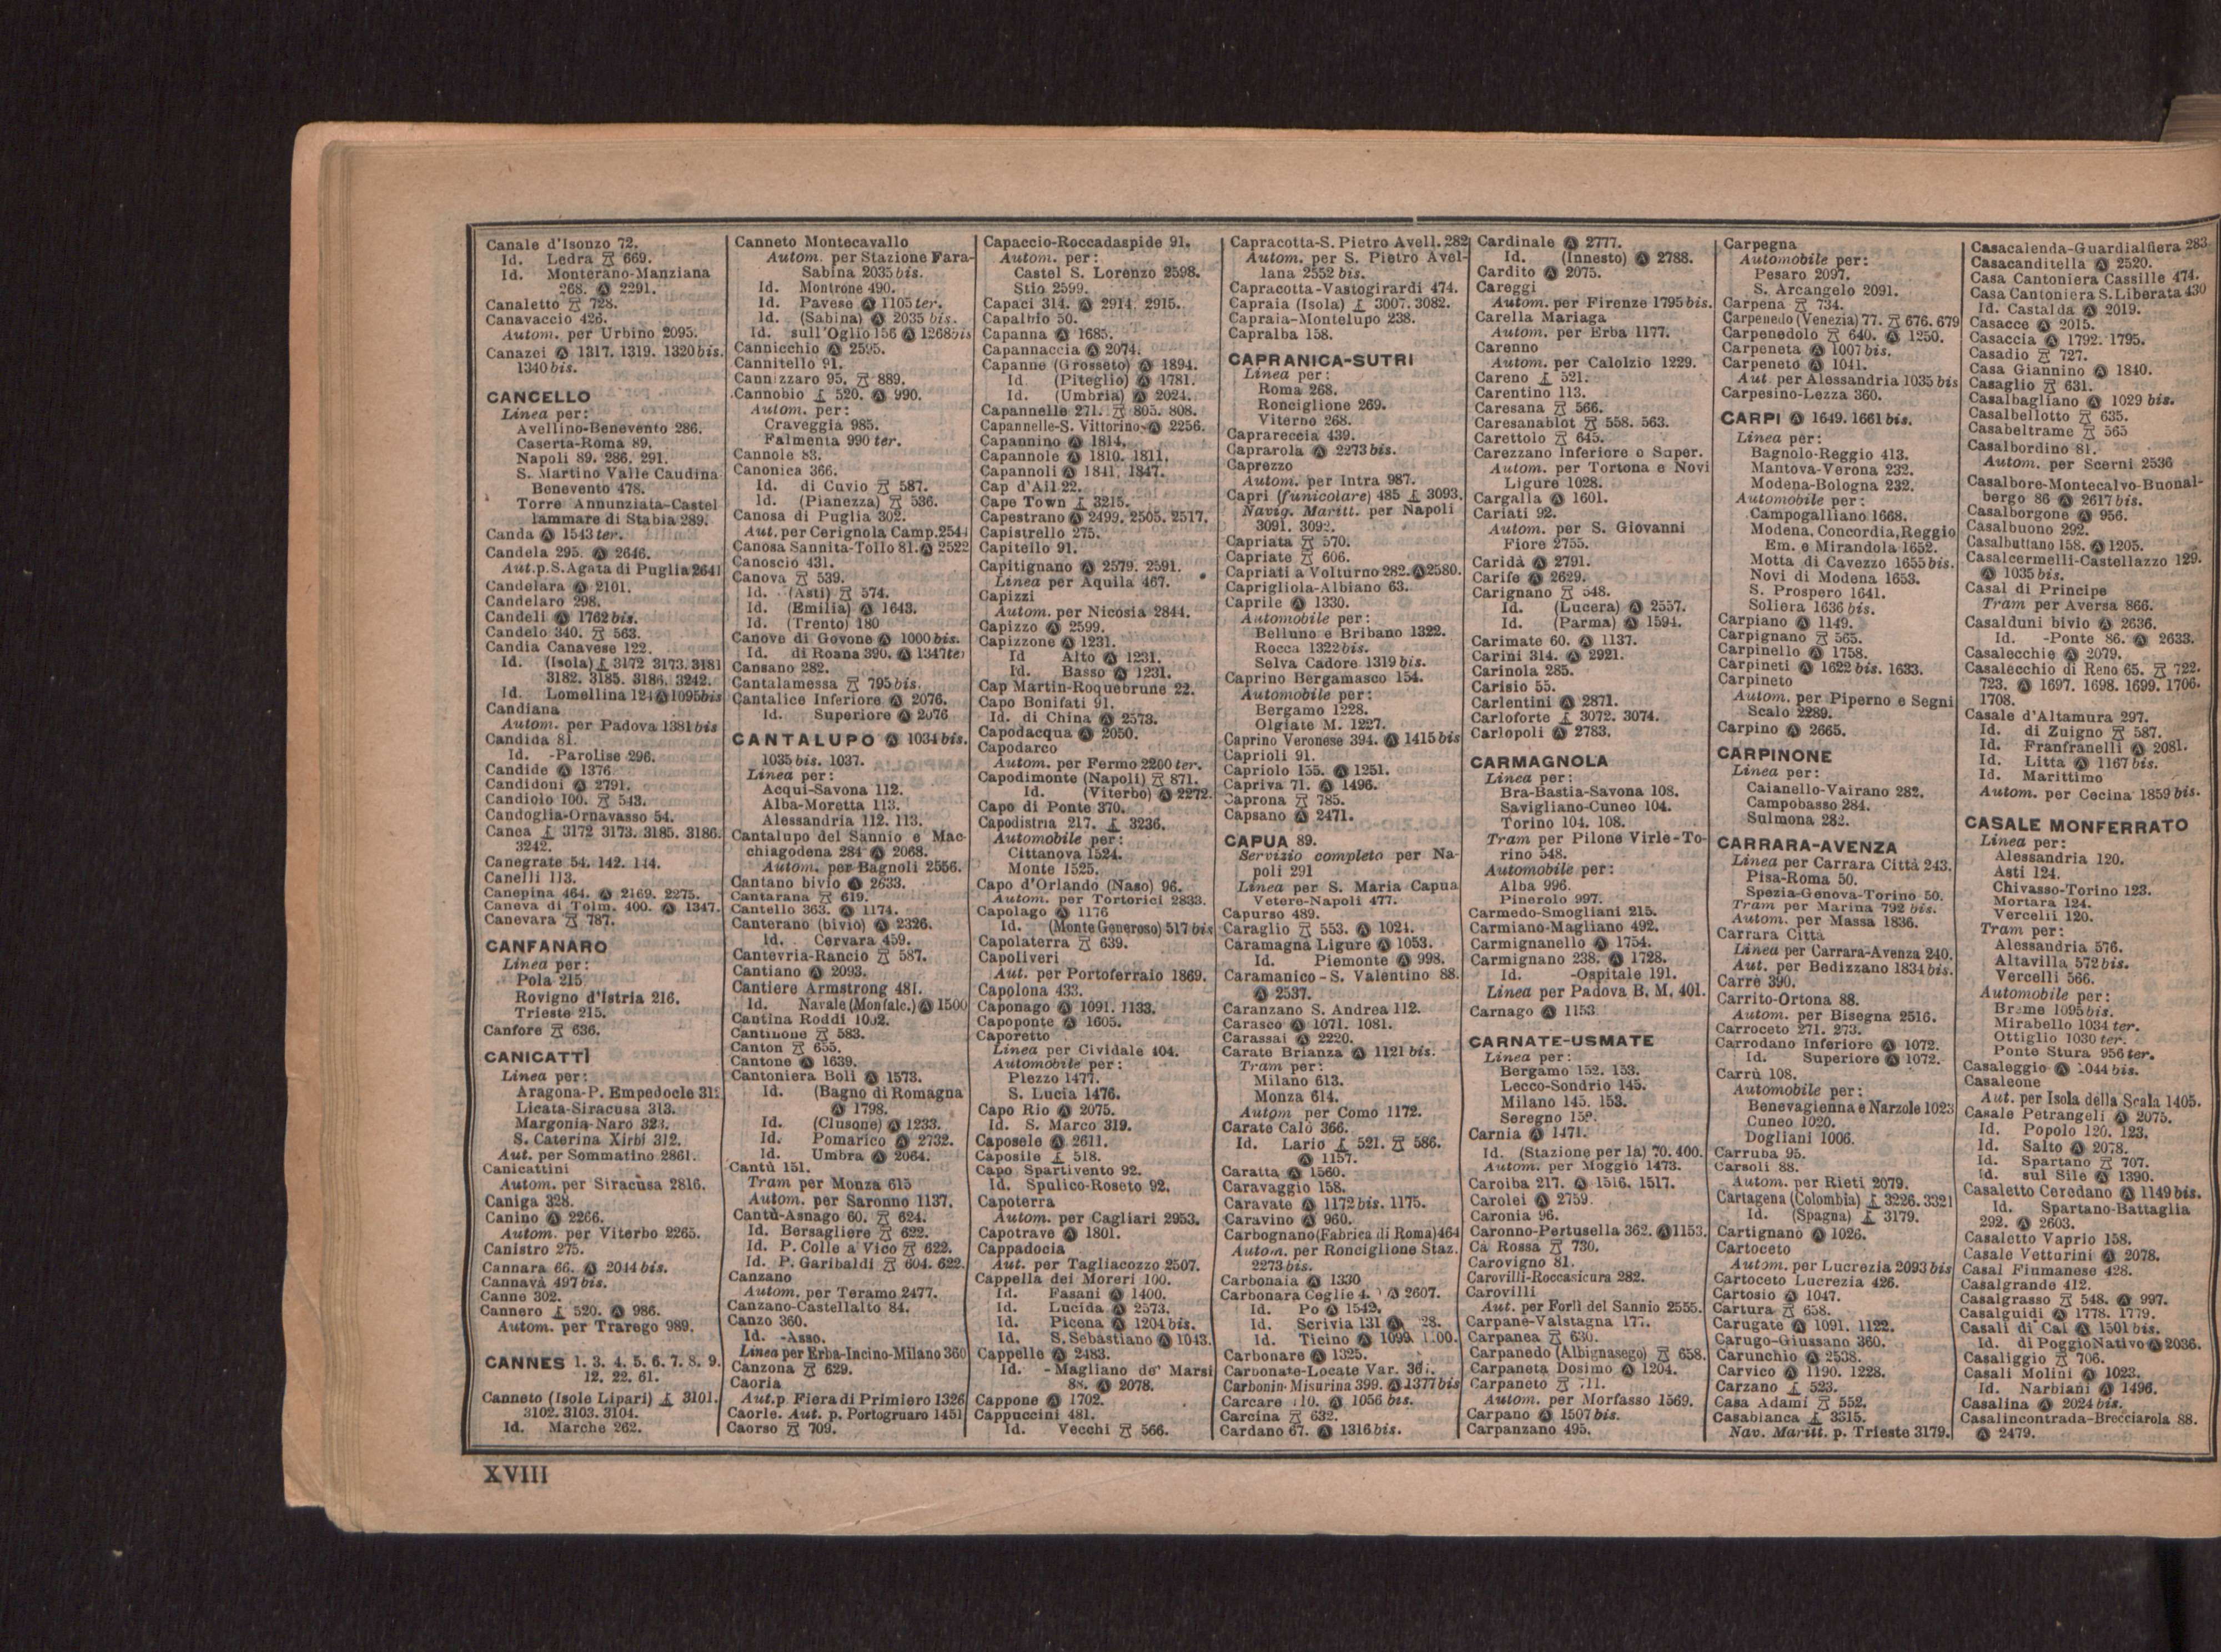 Canale d'Isonzo 72.
Id. Ledra 669.
Id. Monterano-Manziana
268. Ⓐ 2291.
Canaletto 728.
Canavaccio 426.
Autom. per Urbino 2095.
Canazei Ⓐ 1317. 1319. 1320 bis.
1340 bis.
CANCELLO
Linea per:
Avellino-Benevento 286.
Caserta-Roma 89.
Napoli 89. 286. 291.
S. Martino Valle Caudina
Benevento 478.
Torre Annunziata-Castel
lammare di Stabia 289.
Canda Ⓐ 1543 ter.
Candela 295. Ⓐ 2646.
Aut.p.S.Agata di Puglia 2641
Candelara Ⓐ 2101.
Candelaro 298.
Candeli Ⓐ 1762 bis.
Candelo 340. 563.
Candia Canavese 122.
Id. (Isola) 3172 3173. 3181
3182. 3185. 3186. 3242.
Id. Lomellina 124 Ⓐ 1095 bis
Candiana
Autom. per Padova 1381 bis
Candida 81.
Id. -Parolise 296.
Candide Ⓐ 1376
Candidoni Ⓐ 2791.
Candiolo 100. 543.
Candoglia-Ornavasso 54.
Canea 3172 3173. 3185. 3186.
3242.
Canegrate 54. 142. 144.
Canelli 113.
Canepina 464. Ⓐ 2169. 2275.
Caneva di Tolm. 400. Ⓐ 1347.
Canevara 787.
CANFANARO
Linea per:
Pola 215
Rovigno d'Istria 216.
Trieste 215.
Canfore 636.
CANICATTÌ
Linea per:
Aragona-P. Empedocle 31
Licata-Siracusa 313.
Margonia-Naro 323.
S. Caterina Xirbi 312.
Aut. per Sommatino 2861.
Canicattini
Autom. per Siracusa 2816.
Caniga 328.
Canino Ⓐ 2266.
Autom. per Viterbo 2265.
Canistro 275.
Cannara 66. Ⓐ 2044 bis.
Cannavà 497 bis.
Canne 302.
Cannero 520. Ⓐ 986.
Autom. per Trarego 989.
CANNES 1. 3. 4. 5. 6. 7. 8. 9.
12. 22. 61.
Canneto (Isole Lipari) 3101.
3102. 3103. 3104.
Id. Marche 262.
Canneto Montecavallo
Autom. per Stazione Fara-
Sabina 2035 bis.
Id. Montrone 490.
Id. Pavese Ⓐ 1105 ter.
Id. (Sabina) Ⓐ 2035 bis.
Id. sull'Oglio 156 Ⓐ 1268 bis
Cannicchio Ⓐ 2595.
Cannitello 91.
Cannizzaro 95. 889.
Cannobio 520. Ⓐ 990.
Autom. per:
Craveggia 985.
Falmenta 990 ter.
Cannole 83.
Canonica 366.
Id. di Cuvio 587.
Id. (Pianezza) 536.
Canosa di Puglia 302.
Aut. per Cerignola Camp. 2544
Canosa Sannita-Tollo 81. Ⓐ 2522
Canoscio 431.
Canova 539.
Id. (Asti) 574.
Id. (Emilia) Ⓐ 1643.
Id. (Trento) 180
Canove di Govone Ⓐ 1000 bis.
Id. di Roana 390. Ⓐ 1347 ter
Cansano 282.
Cantalamessa 795 bis.
Cantalice Inferiore Ⓐ 2076.
Id. Superiore Ⓐ 2076
CANTALUPO Ⓐ 1034 bis.
1035 bis. 1037.
Linea per:
Acqui-Savona 112.
Alba-Moretta 113.
Alessandria 112. 113.
Cantalupo del Sannio e Mac-
chiagodena 284 Ⓐ 2068.
Autom. per Bagnoli 2556.
Cantano bivio Ⓐ 2633.
Cantarana 619.
Cantello 363. Ⓐ 1174.
Canterano (bivio) Ⓐ 2326.
Id. Cervara 459.
Cantevria-Rancio 587.
Cantiano Ⓐ 2093.
Cantiere Armstrong 481.
Id. Navale (Monfalc.) Ⓐ 1500
Cantina Roddi 1002.
Cantinone 583.
Canton 655.
Cantone Ⓐ 1639.
Cantoniera Boli Ⓐ 1573.
Id. (Bagno di Romagna
Ⓐ 1798.
Id. (Clusone) Ⓐ 1233.
Id. Pomarico Ⓐ 2732.
Id. Umbra Ⓐ 2064.
Cantù 151.
Tram per Monza 615
Autom. per Saronno 1137.
Cantù-Asnago 60. 624.
Id. Bersagliere 622.
Id. P. Colle a Vico 622.
Id. P. Garibaldi 604. 622.
Canzano
Autom. per Teramo 2477.
Canzano-Castellalto 84.
Canzo 360.
Id. -Asso.
Linea per Erba-Incino-Milano 360
Canzona 629.
Caoria
Aut.p. Fiera di Primiero 1326
Caorle. Aut. p. Portogruaro 1451
Caorso 709.
Capaccio-Roccadaspide 91.
Autom. per:
Castel S. Lorenzo 2598.
Stio 2599.
Capaci 314. Ⓐ 2914. 2915.
Capalbio 50.
Capanna Ⓐ 1685.
Capannaccia Ⓐ 2074.
Capanne (Grosseto) Ⓐ 1894.
Id (Piteglio) Ⓐ 1781.
Id. (Umbria) Ⓐ 2024.
Capannelle 271. 805. 808.
Capannelle-S. Vittorino Ⓐ 2256.
Capannino Ⓐ 1814.
Capannole Ⓐ 1810. 1811.
Capannoli Ⓐ 1841. 1847.
Cap d'Ail 22.
Cape Town 3215.
Capestrano Ⓐ 2499. 2505. 2517.
Capistrello 275.
Capitello 91.
Capitignano Ⓐ 2579. 2591.
Linea per Aquila 467.
Capizzi
Autom. per Nicosia 2844.
Capizzo Ⓐ 2599.
Capizzone Ⓐ 1231.
Id Alto Ⓐ 1231.
Id. Basso Ⓐ 1231.
Cap Martin-Roquebrune 22.
Capo Bonifati 91.
Id. di China Ⓐ 2573.
Capodacqua Ⓐ 2050.
Capodarco
Autom. per Fermo 2200 ter.
Capodimonte (Napoli) 871.
Id. (Viterbo) Ⓐ 2272.
Capo di Ponte 370.
Capodistria 217. 3236.
Automobile per:
Cittanova 1524.
Monte 1525.
Capo d'Orlando (Naso) 96.
Autom. per Tortorici 2833.
Capolago Ⓐ 1176
Id. (Monte Generoso) 517 bis
Capolaterra 639.
Capoliveri
Aut. per Portoferraio 1869.
Capolona 433.
Caponago Ⓐ 1091. 1133.
Capoponte Ⓐ 1605.
Caporetto
Linea per Cividale 404.
Automobile per:
Plezzo 1477.
S. Lucia 1476.
Capo Rio Ⓐ 2075.
Id. S. Marco 319.
Caposele Ⓐ 2611.
Caposile 518.
Capo Spartivento 92.
Id. Spulico-Roseto 92.
Capoterra
Autom. per Cagliari 2953.
Capotrave Ⓐ 1801.
Cappadocia
Aut. per Tagliacozzo 2507.
Cappella dei Moreri 100.
Id. Fasani Ⓐ 1400.
Id. Lucida Ⓐ 2573.
Id. Picena Ⓐ 1204 bis.
Id. S. Sebastiano Ⓐ 1043.
Cappelle Ⓐ 2483.
Id. - Magliano de' Marsi
88. Ⓐ 2078.
Cappone Ⓐ 1702.
Cappuccini 481.
Id. Vecchi 566.
Capracotta-S. Pietro Avell. 282
Autom. per S. Pietro Avel-
lana 2552 bis.
Capracotta-Vastogirardi 474.
Capraia (Isola) 3007. 3082.
Capraia-Montelupo 238.
Capralba 158.
CAPRANICA-SUTRI
Linea per:
Roma 268.
Ronciglione 269.
Viterbo 268.
Caprareccia 439.
Caprarola Ⓐ 2273 bis.
Caprezzo
Autom. per Intra 987.
Capri (funicolare) 485 3093.
Navig. Maritt. per Napoli
3091. 3092.
Capriata 570.
Capriate 606.
Capriati a Volturno 282. Ⓐ 2580.
Caprigliola-Albiano 63.
Caprile Ⓐ 1330.
Automobile per:
Belluno e Bribano 1322.
Rocca 1322 bis.
Selva Cadore 1319 bis.
Caprino Bergamasco 154.
Automobile per:
Bergamo 1228.
Olgiate M. 1227.
Caprino Veronese 394. Ⓐ 1415 bis
Caprioli 91.
Capriolo 155. Ⓐ 1251.
Capriva 71. Ⓐ 1496.
Caprona 785.
Capsano Ⓐ 2471.
CAPUA 89.
Servizio completo per Na-
poli 291
Linea per S. Maria Capua
Vetere-Napoli 477.
Capurso 489.
Caraglio 553. Ⓐ 1024.
Caramagna Ligure Ⓐ 1053.
Id. Piemonte Ⓐ 998.
Caramanico - S. Valentino 88.
Ⓐ 2537.
Caranzano S. Andrea 112.
Carasco Ⓐ 1071. 1081.
Carassai Ⓐ 2220.
Carate Brianza Ⓐ 1121 bis.
Tram per:
Milano 613.
Monza 614.
Autom per Como 1172.
Carate Calò 366.
Id. Lario 521. 586.
Ⓐ 1157.
Caratta Ⓐ 1560.
Caravaggio 158.
Caravate Ⓐ 1172 bis. 1175.
Caravino Ⓐ 960.
Carbognano (Fabrica di Roma) 464
Autom. per Ronciglione Staz.
2273 bis.
Carbonaia Ⓐ 1330
Carbonara Ceglie Ⓐ 2607.
Id. Po Ⓐ 1542.
Id. Scrivia 131 Ⓐ
Id. Ticino Ⓐ 1099.
Carbonare Ⓐ 1325.
Carbonate-Locate Var.
Carbonin-Misurina 399. Ⓐ 1377 bis
Carcare Ⓐ 1056 bis.
Carcina 632.
Cardano 67. Ⓐ 1316 bis.
Cardinale Ⓐ 2777.
Id. (Innesto) Ⓐ 2788.
Cardito Ⓐ 2075.
Careggi
Autom. per Firenze 1795 bis.
Carella Mariaga
Autom. per Erba 1177.
Carenno
Autom. per Calolzio 1229.
Careno 521.
Carentino 113.
Caresana 566.
Caresanablot 558. 563.
Carettolo 645.
Carezzano Inferiore e Super.
Autom. per Tortona e Novi
Ligure 1028.
Cargalla Ⓐ 1601.
Cariati 92.
Autom. per S. Giovanni
Fiore 2755.
Caridà Ⓐ 2791.
Carife Ⓐ 2629.
Carignano 548.
Id. (Lucera) Ⓐ 2557.
Id. (Parma) Ⓐ 1594.
Carimate 60. Ⓐ 1137.
Carini 314. Ⓐ 2921.
Carinola 285.
Carisio 55.
Carlentini Ⓐ 2871.
Carloforte 3072. 3074.
Carlopoli Ⓐ 2783.
CARMAGNOLA
Linea per:
Bra-Bastia-Savona 108.
Savigliano-Cuneo 104.
Torino 104. 108.
Tram per Pilone Virle-To-
rino 548.
Automobile per:
Alba 996.
Pinerolo 997.
Carmedo-Smogliani 215.
Carmiano-Magliano 492.
Carmignanello Ⓐ 1754.
Carmignano 238. Ⓐ 1728.
Id. -Ospitale 191.
Linea per Padova B. M. 401.
Carnago Ⓐ 1153
CARNATE-USMATE
Linea per:
Bergamo 152. 153.
Lecco-Sondrio 145.
Milano 145. 153.
Seregno
Carnia Ⓐ 1471.
Id. (Stazione per la) 70. 400.
Autom. per Moggio 1473.
Caroiba 217. Ⓐ 1516. 1517.
Carolei Ⓐ 2759.
Caronia 96.
Caronno-Pertusella 362. Ⓐ 1153.
Cà Rossa 730.
Carovigno 81.
Carovilli-Roccasicura 282.
Carovilli
Aut. per Forlì del Sannio 2555.
Carpanè-Valstagna 177.
Carpanea 630.
Carpanedo (Albignasego) 658.
Carpaneta Dosimo Ⓐ 1204.
Carpaneto
Autom. per Morfasso 1569.
Carpano Ⓐ 1507 bis.
Carpanzano 495.
Carpegna
Automobile per:
Pesaro 2097.
S. Arcangelo 2091.
Carpena 734.
Carpenedo (Venezia) 77. 676. 679
Carpenedolo 640. Ⓐ 1250.
Carpeneta Ⓐ 1007 bis.
Carpeneto Ⓐ 1041.
Aut per Alessandria 1035 bis
Carpesino-Lezza 360.
CARPI Ⓐ 1649. 1661 bis.
Linea per:
Bagnolo-Reggio 413.
Mantova-Verona 232.
Modena-Bologna 232.
Automobile per:
Campogalliano 1668.
Modena, Concordia, Reggio
Em. e Mirandola 1652.
Motta di Cavezzo 1655 bis.
Novi di Modena 1653.
S. Prospero 1641.
Soliera 1636 bis.
Carpiano Ⓐ 1149.
Carpignano 565.
Carpinello Ⓐ 1758.
Carpineti Ⓐ 1622 bis. 1633.
Carpineto
Autom. per Piperno e Segni
Scalo 2289.
Carpino Ⓐ 2665.
CARPINONE
Linea per:
Caianello-Vairano 282.
Campobasso 284.
Sulmona 282.
CARRARA-AVENZA
Linea per Carrara Città 243.
Pisa-Roma 50.
Spezia-Genova-Torino 50.
Tram per Marina 792 bis.
Autom. per Massa 1836.
Carrara Città
Linea per Carrara-Avenza 240.
Aut. per Bedizzano 1834 bis.
Carrè 390.
Carrito-Ortona 88.
Autom. per Bisegna 2516.
Carroceto 271. 273.
Carrodano Inferiore Ⓐ 1072.
Id. Superiore Ⓐ 1072.
Carrù 108.
Automobile per:
Benevagienna e Narzole 1023
Cuneo 1020.
Dogliani 1006.
Carruba 95.
Carsoli 88.
Autom. per Rieti 2079.
Cartagena (Colombia) 3226. 3321
Id. (Spagna) 3179.
Cartignano Ⓐ 1026.
Cartoceto
Autom. per Lucrezia 2093 bis
Cartoceto Lucrezia 426.
Cartosio Ⓐ 1047.
Cartura 658.
Carugate Ⓐ 1091. 1122.
Carugo-Giussano 360.
Carunchio Ⓐ 2538.
Carvico Ⓐ 1190. 1228.
Carzano 523.
Casa Adami 552.
Casabianca 3315.
Nav. Maritt. p. Trieste 3179.
Casacalenda-Guardialfiera 283
Casacanditella Ⓐ 2520.
Casa Cantoniera Cassille 474.
Casa Cantoniera S. Liberata 430
Id. Castalda Ⓐ 2019.
Casacce Ⓐ 2015.
Casaccia Ⓐ 1792. 1795.
Casadio 727.
Casa Giannino Ⓐ 1840.
Casaglio 631.
Casalbagliano Ⓐ 1029 bis.
Casalbellotto 635.
Casabeltrame 565
Casalbordino 81.
Autom. per Scerni 2536
Casalbore-Montecalvo-Buonal-
bergo 86 Ⓐ 2617 bis.
Casalborgone Ⓐ 956.
Casalbuono 292.
Casalbuttano 158. Ⓐ 1205.
Casalcermelli-Castellazzo 129.
Ⓐ 1035 bis.
Casal di Principe
Tram per Aversa 866.
Casalduni bivio Ⓐ 2636.
Id. -Ponte 86. Ⓐ 2633.
Casalecchie Ⓐ 2079.
Casalecchio di Reno 65. 722.
723. Ⓐ 1697. 1698. 1699. 1706.
1708.
Casale d'Altamura 297.
Id. di Zuigno 587.
Id. Franfranelli Ⓐ 2081.
Id. Litta Ⓐ 1167 bis.
Id. Marittimo
Autom. per Cecina 1859 bis.
CASALE MONFERRATO
Linea per:
Alessandria 120.
Asti 124.
Chivasso-Torino 123.
Mortara 124.
Vercelli 120.
Tram per:
Alessandria 576.
Altavilla 572 bis.
Vercelli 566.
Automobile per:
Breme 1095 bis.
Mirabello 1034 ter.
Ottiglio 1030 ter.
Ponte Stura 956 ter.
Casaleggio Ⓐ 1044 bis.
Casaleone
Aut. per Isola della Scala 1405.
Casale Petrangeli Ⓐ 2075.
Id. Popolo 120. 123.
Id. Salto Ⓐ 2078.
Id. Spartano 707.
Id. sul Sile Ⓐ 1390.
Casaletto Ceredano Ⓐ 1149 bis.
Id. Spartano-Battaglia
292. Ⓐ 2603.
Casaletto Vaprio 158.
Casale Vetturini Ⓐ 2078.
Casal Fiumanese 428.
Casalgrande 412.
Casalgrasso 548. Ⓐ 997.
Casalguidi Ⓐ 1778. 1779.
Casali di Cal Ⓐ 1501 bis.
Id. di Poggio Nativo Ⓐ 2036.
Casaliggio 706.
Casali Molini Ⓐ 1023.
Id. Narbiani Ⓐ 1496.
Casalina Ⓐ 2024 bis.
Casalincontrada-Brecciarola 88.
Ⓐ 2479.
XVIII